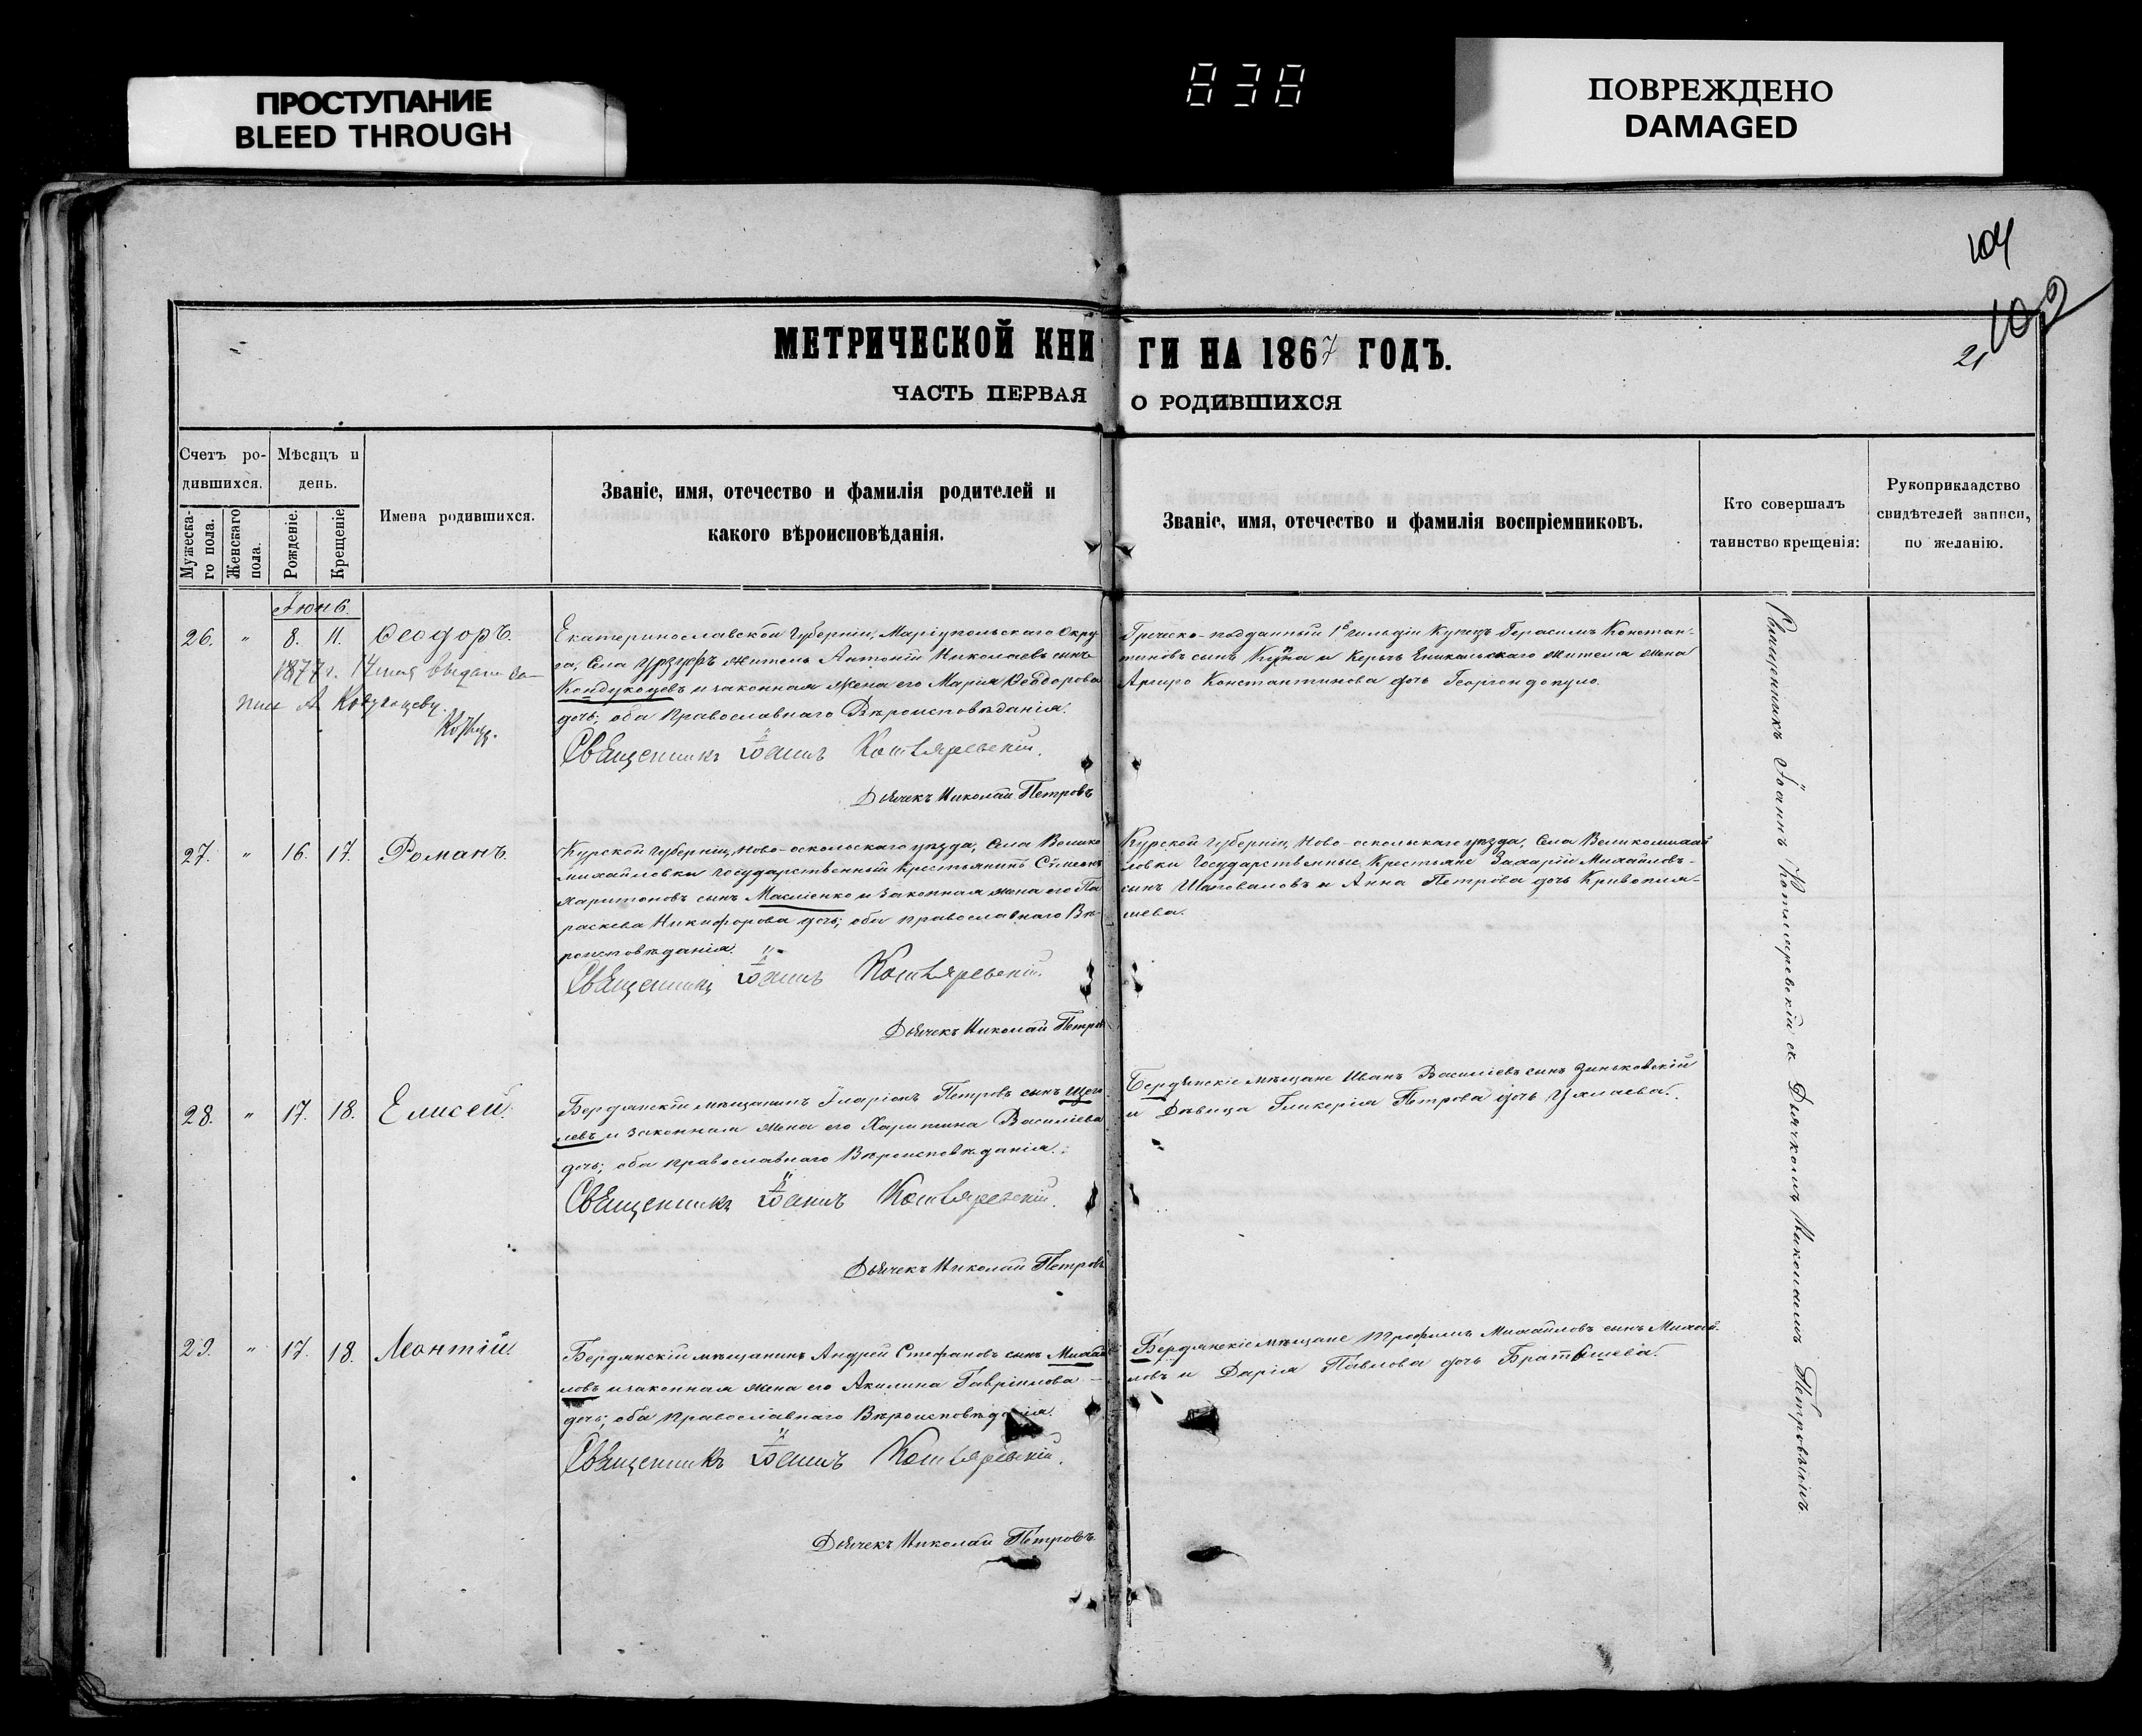 ПРОСТУПАНИЕ
BLEED THROUGH
838
ПОВРЕЖДЕНО
DAMAGED
104
102
21
МЕТРИЧЕСКОЙ КНИГИ НА 1867 ГОДЪ.
ЧАСТЬ ПЕРВАЯ О РОДИВШИХСЯ
Счетъ ро-
дившихся.
Мужеска-
го пола.
Женскаго
пола.
Мѣсяцъ и
день.
Рожденіе.
Крещеніе
Имена родившихся.
Званіе, имя, отечество и фамилія родителей и
какого вѣроисповѣданія.
Званіе, имя, отечество и фамилія воспріемниковъ.
Кто совершалъ
таинство крещенія:
Рукоприкладство
свидѣтелей записи,
по желанію.
26. " 8. 11. Ѳеодоръ.
1877 г. выдано
Екатеринославской Губерніи, Маріупольскаго Окру-
га, Села Урзуфъ житель Антоній Николаевъ сынъ
Кондукоцевъ и законная жена его Марія Ѳеодорова
дочь; оба Православнаго Вѣроисповѣданія.
Священникъ Іоаннъ Котляревскій.
Дьячекъ Николай Петровъ
Греческо-подданный 1й гильдіи Купецъ Герасимъ Констан-
тиновъ сынъ и Керчь Еникольскаго жителя жена
Аргиро Константинова дочь Георгондопуло.
27. " 16. 17. Романъ.
Курской Губерніи, Ново-оскольскаго уѣзда, Села Велико
михайловки Государственный Крестьянинъ Сѵмеонъ
Харитоновъ сынъ Маслиенко и Законная жена его Па
раскева Никифорова дочь; оба православнаго Вѣ-
роисповѣданія.
Священникъ Іоаннъ Котляревскій.
Дьячекъ Николай Петров
Курской Губерніи, Ново-оскольскаго уѣзда, Села Великомихай
ловки Государственные Крестьяне Захарій Михайловъ-
сынъ Шаповаловъ и Анна Петрова дочь Кривопля-
шева.
28. " 17. 18. Елисей.
Бердянскій мѣщанинъ Иларіонъ Петровъ сынъ Щего
левъ и Законная жена его Харитина Василіева
дочь; оба православнаго Вѣроисповѣданія.
Священникъ Іоаннъ Котляревскій.
Дьячекъ Николай Петровъ
Бердянскіе мѣщане Иванъ Василіевъ сынъ Зиньковскій
и Дѣвица Гликерія Петрова дочь
29. " 17. 18. Леонтій.
Бердянскій мѣщанинъ Андрей Стефановъ сынъ Михай
ловъ и законная жена его Акилина Гавріилова
дочь; оба православнаго Вѣроисповѣданія.
Священникъ Іоаннъ Котляревскій.
Дьячекъ Николай Петровъ.
Бердянскіе мѣщане Трофимъ Михайловъ сынъ Михай-
ловъ и Дарія Павлова дочь
Священникъ Іоаннъ Котляревскій съ Дьячкомъ Николаемъ Петровымъ.